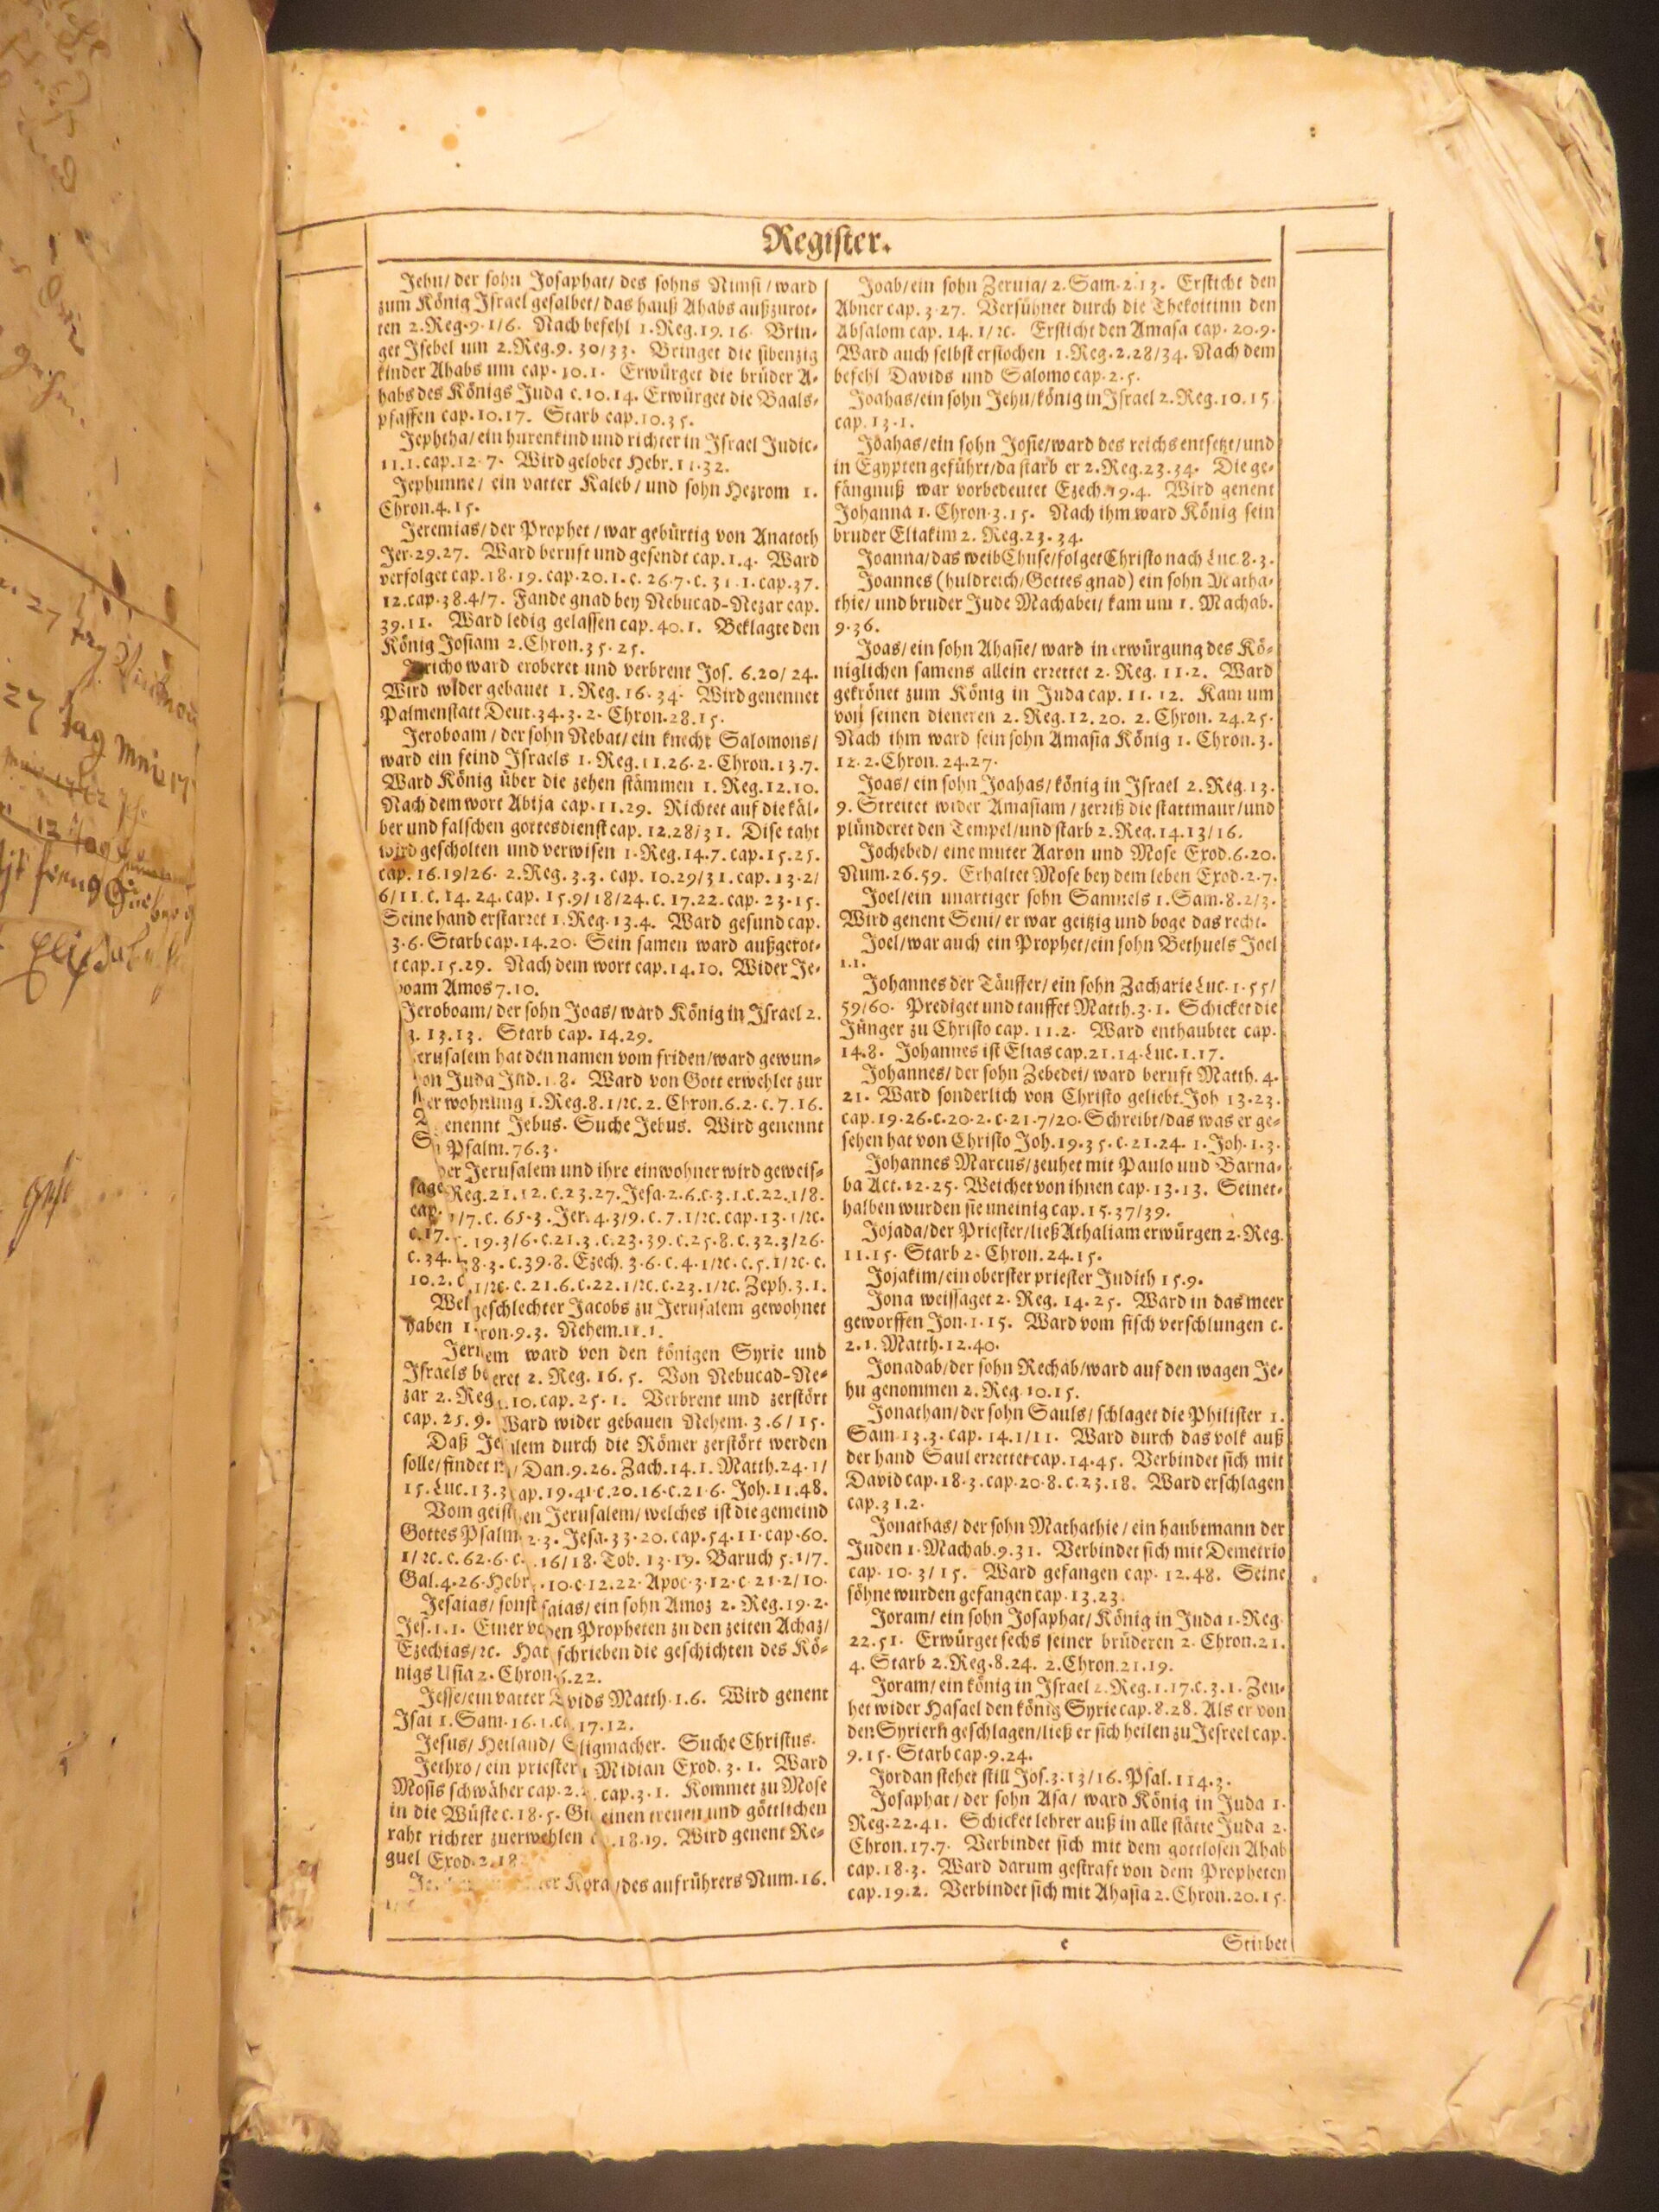 Register.
Jehu/ der sohn Josaphat/ des sohns Nimsi/ ward
zum König Israel gesalbet/ das hauß Ahabs außzurot-
ten 2.Reg.9.1/6. Nach befehl 1.Reg.19.16. Brin-
get Isebel um 2.Reg.9.30/33. Bringet die sibenzig
kinder Ahabs um cap.10.1. Erwürget die brüder A-
habs des Königs Juda c.10.14. Erwürget die Baals-
pfaffen cap.10.17. Starb cap.10.35.
Jephtha/ ein hurenkind und richter in Israel Judic.
11.1.cap.12.7. Wird gelobet Hebr.11.32.
Jephunne/ ein vatter Kaleb/ und sohn Hezrom 1.
Chron.4.15.
Jeremias/ der Prophet/ war gebürtig von Anatoth
Jer.29.27. Ward beruft und gesendt cap.1.4. Ward
verfolget cap.18.19.cap.20.1.c.26.7.c.31.1.cap.37.
12.cap.38.4/7. Fande gnad bey Nebucad-Nezar cap.
39.11. Ward ledig gelassen cap.40.1. Beklagte den
König Josiam 2.Chron.35.25.
Jericho ward eroberet und verbrent Jos. 6.20/24.
Wird wider gebauet 1. Reg. 16.34. Wird genennet
Palmenstatt Deut.34.3.2.Chron.28.15.
Jeroboam/ der sohn Nebat/ ein knecht Salomons/
ward ein feind Israels 1.Reg.11.26.2.Chron.13.7.
Ward König über die zehen stämmen 1.Reg.12.10.
Nach dem wort Abija cap.11.29. Richtet auf die käl-
ber und falschen gottesdienst cap. 12.28/31. Dise taht
wird gescholten und verwisen 1.Reg.14.7.cap.15.25.
cap. 16.19/26. 2.Reg.3.3. cap. 10.29/31.cap.13.2/
6/11.c.14.24.cap.15.9/18/24.c.17.22.cap.23.15.
Seine hand erstarret 1.Reg.13.4. Ward gesund cap.
3.6. Starb cap.14.20. Sein samen ward außgerot-
t cap.15.29. Nach dem wort cap.14.10. Wider Je-
boam Amos 7.10.
Jeroboam/ der sohn Joas/ ward König in Israel 2.
13.13. Starb cap. 14.29.
erusalem hat den namen vom friden/ ward gewun-
on Juda Jud.1.8. Ward von Gott erwehlet zur
er wohnung 1.Reg.8.1/2c.2.Chron.6.2.c.7.16.
enennt Jebus. Suche Jebus. Wird genennt
Psalm.76.3.
ber Jerusalem und ihre einwohner wird geweis-
sage Reg.21.12.c.23.27.Jesa.2.6.c.3.1.c.22.1/8.
cap. 1/7.c.65.3.Jer.4.3/9.c.7.1/2c.cap.13.1/2c.
c.17. 19.3/6.c.21.3.c.23.39.c.25.8.c.32.3/26.
c.34. 8.3.c.39.8.Ezech.3.6.c.4.1/2c.c.5.1/2c.c.
10.2.c 1/2c.c.21.6.c.22.1/2c.c.23.1/2c. Zeph.3.1.
Wel geschlechter Jacobs zu Jerusalem gewohnet
haben 1 ron.9.3. Nehem.11.1.
Jeru em ward von den königen Syrie und
Israels be eret 2. Reg. 16.5. Von Nebucad-Ne-
zar 2. Reg .10.cap.25.1. Verbrent und zerstört
cap. 25.9. Ward wider gebauen Nehem. 3.6/15.
Daß Je alem durch die Römer zerstört werden
solle/ findet n / Dan.9.26. Zach.14.1. Matth.24.1/
15. Luc.13.3 ap.19.41.c.20.16.c.21.6. Joh.11.48.
Vom geist en Jerusalem/ welches ist die gemeind
Gottes Psalm 2.3. Jesa.33.20.cap.54.11.cap.60.
1/2c.c.62.6.c. .16/18.Tob.13.19.Baruch 5.1/7.
Gal.4.26.Hebr .10.c.12.22.Apoc.3.12.c.21.2/10.
Jesaias/ sonst saias/ ein sohn Amoz 2.Reg.19.2.
Jes.1.1. Einer vo den Propheten zu den zeiten Achaz/
Ezechias/2c. Hat schrieben die geschichten des Kö-
nigs Usia 2.Chron. 6.22.
Jesse/ ein vatter D vids Matth.1.6. Wird genent
Isai 1.Sam.16.1.c 17.12.
Jesus/ Heiland/ S ligmacher. Suche Christus.
Jethro/ ein priester Midian Exod.3.1. Ward
Mosis schwäher cap.2. cap.3.1. Kommet zu Mose
in die Wüste c.18.5. Gi einen treuen und göttlichen
raht richter zuerwehlen c .18.19. Wird genent Re-
guel Exod.2.18
er Kora/ des aufrührers Num.16.
Joab/ ein sohn Zeruia/ 2.Sam.2.13. Ersticht den
Abner cap.3.27. Versühnet durch die Thekoitinn den
Absalom cap. 14.1/2c. Ersticht den Amasa cap. 20.9.
Ward auch selbst erstochen 1.Reg.2.28/34. Nach dem
befehl Davids und Salomo cap.2.5.
Joahas/ ein sohn Jehu/ könig in Israel 2.Reg.10.15
cap.13.1.
Joahas/ ein sohn Josie/ ward des reichs entsetzt/ und
in Egypten geführt/ da starb er 2.Reg.23.34. Die ge-
fängnuß war vorbedeutet Ezech.19.4. Wird genent
Johanna 1.Chron.3.15. Nach ihm ward König sein
bruder Eliakim 2. Reg.23.34.
Joanna/ das weib Chuse/ folget Christo nach Luc.8.3.
Joannes (huldreich/ Gottes gnad) ein sohn Matha-
thie/ und bruder Jude Machabei/ kam um 1. Machab.
9.36.
Joas/ ein sohn Ahasie/ ward in erwürgung des Kö-
niglichen samens allein errettet 2. Reg. 11.2. Ward
gekrönet zum König in Juda cap. 11.12. Kam um
von seinen dieneren 2. Reg.12.20. 2. Chron. 24.25.
Nach ihm ward sein sohn Amasia König 1. Chron.3.
12.2.Chron.24.27.
Joas/ ein sohn Joahas/ könig in Israel 2.Reg.13.
9. Streitet wider Amasiam/ zerriß die stattmaur/ und
plünderet den Tempel/ und starb 2.Reg.14.13/16.
Jochebed/ eine muter Aaron und Mose Exod.6.20.
Num.26.59. Erhaltet Mose bey dem leben Exod.2.7.
Joel/ ein unartiger sohn Samuels 1.Sam.8.2/3.
Wird genent Seni/ er war geitzig und boge das recht.
Joel/ war auch ein Prophet/ ein sohn Bethuels Joel
1.1.
Johannes der Täuffer/ ein sohn Zacharie Luc.1.55/
59/60. Prediget und tauffet Matth.3.1. Schicket die
Jünger zu Christo cap. 11.2. Ward enthaubtet cap.
14.8. Johannes ist Elias cap.21.14.Luc.1.17.
Johannes/ der sohn Zebedei/ ward beruft Matth.4.
21. Ward sonderlich von Christo geliebt Joh 13.23.
cap.19.26.c.20.2.c.21.7/20. Schreibt/ das was er ge-
sehen hat von Christo Joh.19.35.c.21.24. 1.Joh.1.3.
Johannes Marcus/ zeuhet mit Paulo und Barna-
ba Act.12.25. Weichet von ihnen cap.13.13. Seinet-
halben wurden sie uneinig cap.15.37/39.
Jojada/ der Priester/ ließ Athaliam erwürgen 2.Reg.
11.15. Starb 2. Chron.24.15.
Jojakim/ ein oberster priester Judith 15.9.
Jona weissaget 2. Reg. 14.25. Ward in das meer
geworffen Jon.1.15. Ward vom fisch verschlungen c.
2.1. Matth.12.40.
Jonadab/ der sohn Rechab/ ward auf den wagen Je-
hu genommen 2.Reg.10.15.
Jonathan/ der sohn Sauls/ schlaget die Philister 1.
Sam.13.3. cap. 14.1/11. Ward durch das volk auß
der hand Saul errettet cap.14.45. Verbindet sich mit
David cap.18.3.cap.20.8.c.23.18. Ward erschlagen
cap.31.2.
Jonathas/ der sohn Mathathie/ ein haubtmann der
Juden 1.Machab.9.31. Verbindet sich mit Demetrio
cap. 10.3/15. Ward gefangen cap. 12.48. Seine
söhne wurden gefangen cap.13.23.
Joram/ ein sohn Josaphat/ König in Juda 1.Reg.
22.51. Erwürget sechs seiner brüderen 2.Chron.21.
4. Starb 2.Reg.8.24. 2.Chron.21.19.
Joram/ ein könig in Israel 2.Reg.1.17.c.3.1. Zeu-
het wider Hasael den könig Syrie cap.8.28. Als er von
den Syriern geschlagen/ ließ er sich heilen zu Jesreel cap.
9.15. Starb cap.9.24.
Jordan stehet still Jos.3.13/16. Psal.114.3.
Josaphat/ der sohn Asa/ ward König in Juda 1.
Reg.22.41. Schicket lehrer auß in alle stätte Juda 2.
Chron.17.7. Verbindet sich mit dem gottlosen Ahab
cap.18.3. Ward darum gestraft von dem Propheten
cap.19.2. Verbindet sich mit Ahasia 2.Chron.20.15.
e
Stirbet
27 tag
27 tag